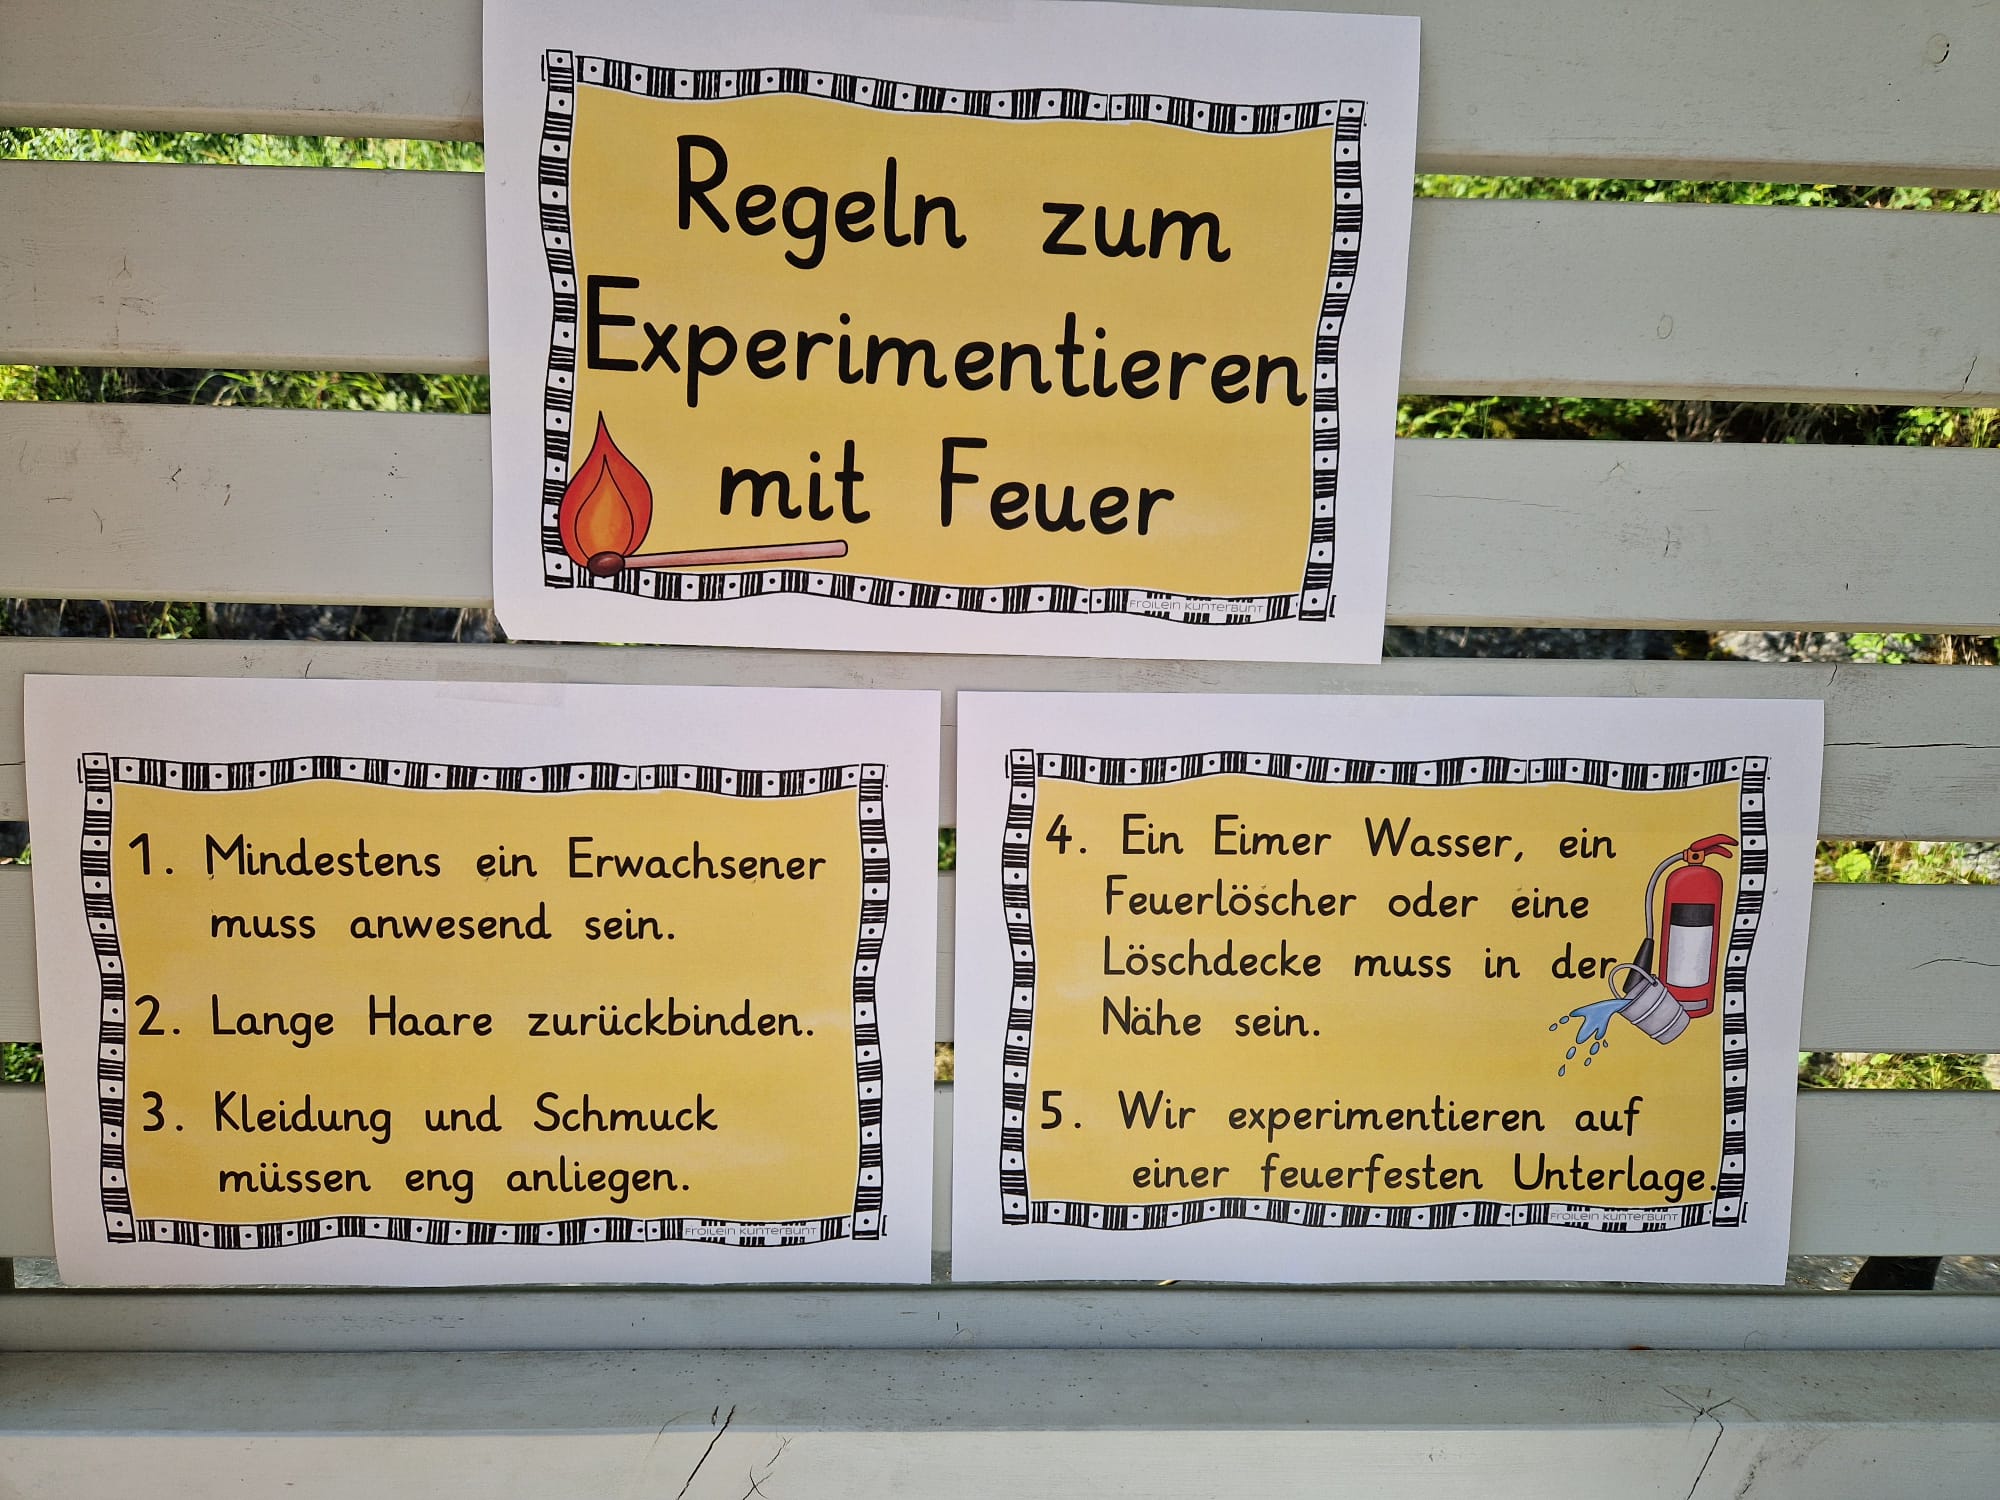 Regeln zum
Experimentieren
mit Feuer
FROILEIN KUNTERBUNT
1. Mindestens ein Erwachsener
muss anwesend sein.
2. Lange Haare zurückbinden.
3. Kleidung und Schmuck
müssen eng anliegen.
FROILEIN KUNTERBUNT
4. Ein Eimer Wasser, ein
Feuerlöscher oder eine
Löschdecke muss in der
Nähe sein.
5. Wir experimentieren auf
einer feuerfesten Unterlage.
FROILEIN KUNTERBUNT